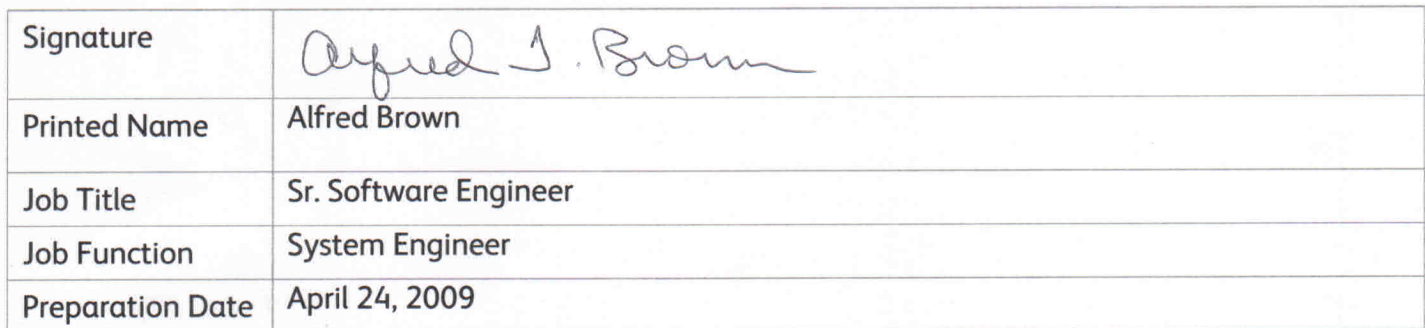 Signature Alfred J. Brown
Printed Name Alfred Brown
Job Title Sr. Software Engineer
Job Function System Engineer
Preparation Date April 24, 2009